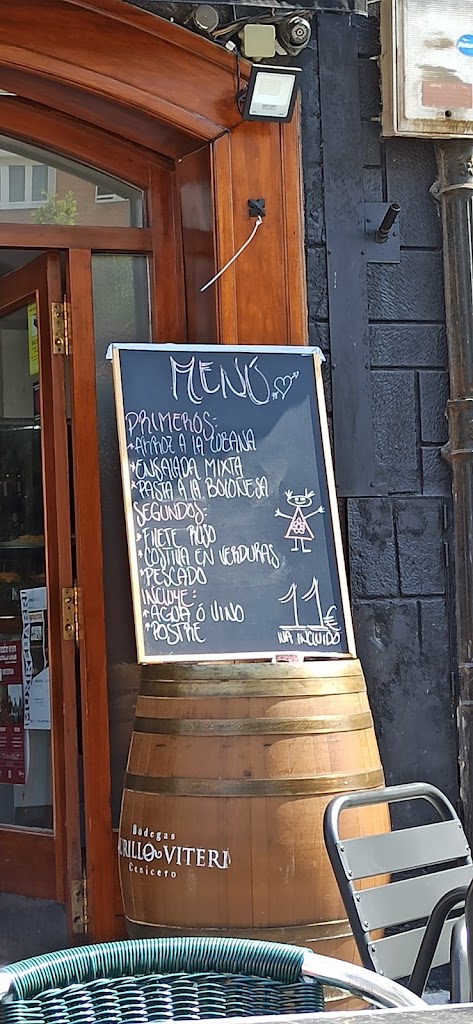 MENÚ
PRIMEROS:-
*ARROZ A LA CUBANA
*ENSALADA MIXTA
*PASTA A LA BOLOÑESA
SEGUNDOS:-
*FILETE RUSO
*COSTILLA EN VERDURAS
*PESCADO
INCLUYE:
*AGUA Ó VINO
*POSTRE
11€
IVA INCLUIDO
Bodegas
URILLO VITERI
Cenicero